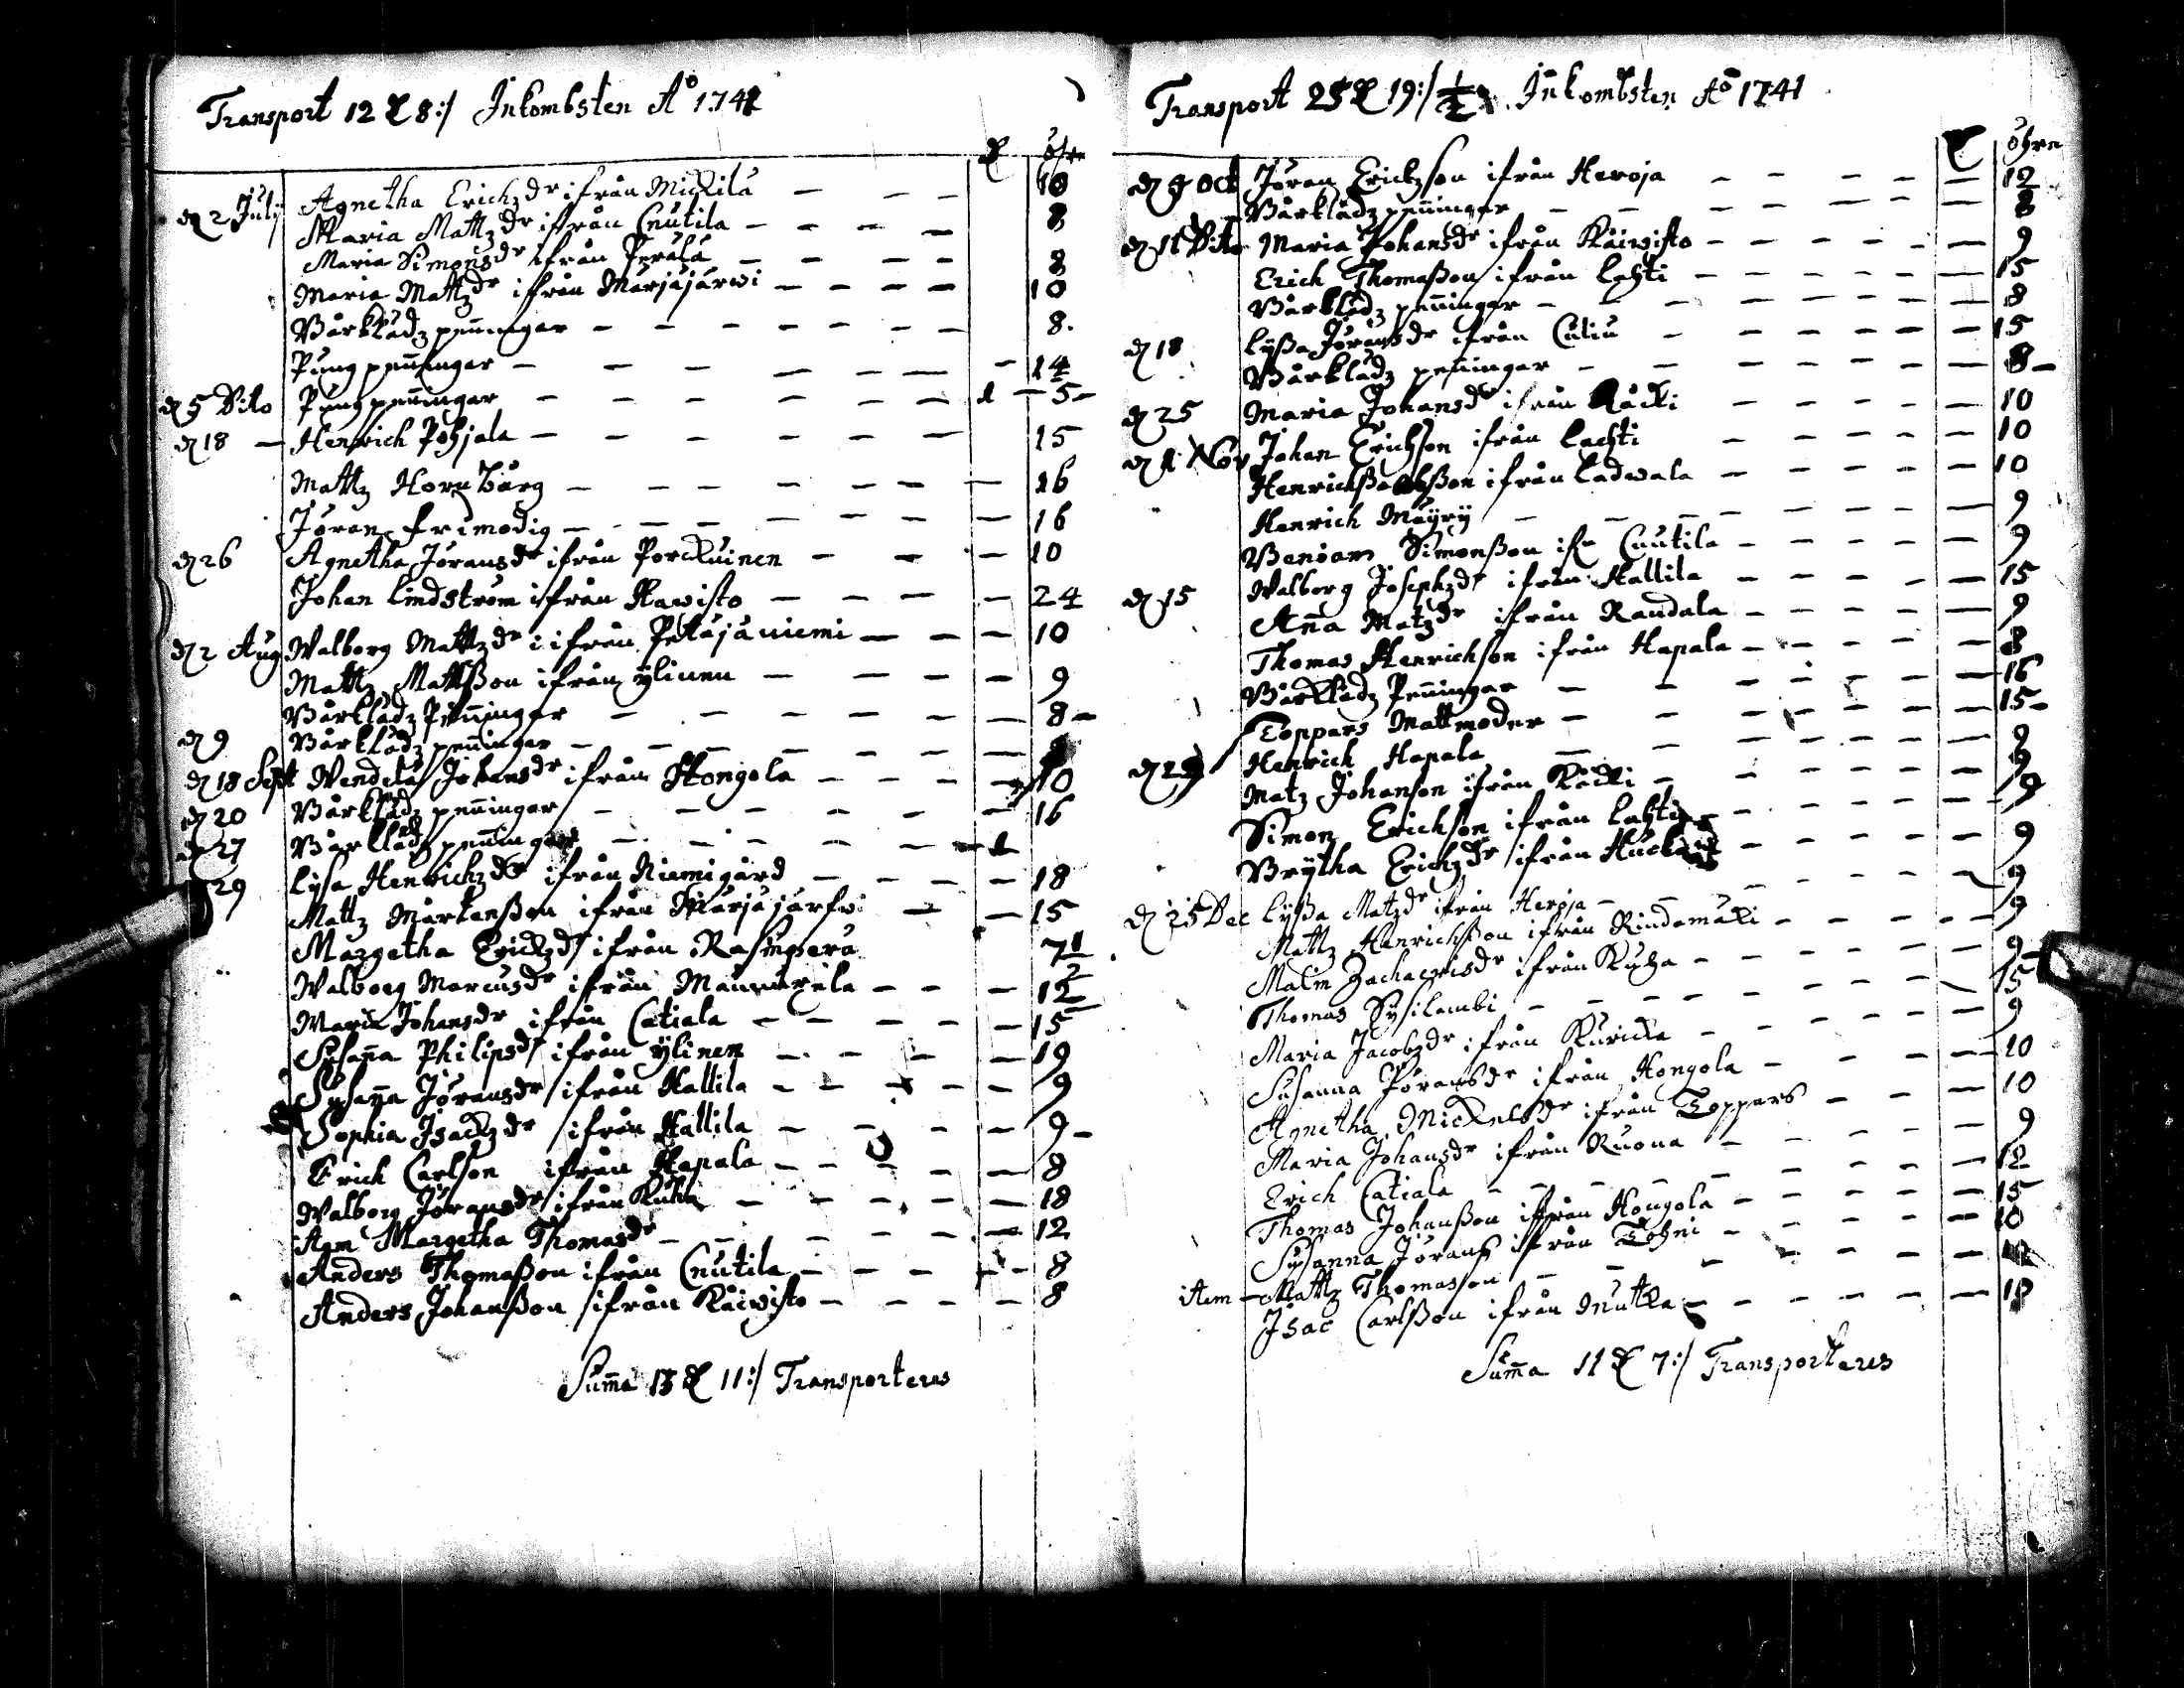 Transport 12 D 8:/ Inkombsten A:o 1741
D öhre
d 2 Julij Agnetha Erichzdr ifrån Mickilä — — — 10
Maria Mattzdr ifrån Cnutila — — — — 8
Maria Simonsdr ifrån Perälä — — — — 8
Maria Mattzdr ifrån Marjajärwi — — — — 10
Bårklädz peñingar — — — — — — — 8.
Pung peñingar — — — — — — — 14
d 5 Dito Pung peñingar — — — — — — 1 — 5 —
d 18 — Henrich Pohjala — — — — — — 15
Mattz Hornborg — — — — — — — 16
Jöran frimodig — — — — — — — 16
d 26 Agnetha Jöransdr ifrån Porckuinen — — — 10
Johan Lindström ifrån Kawisto — — — — 24
d 2 Aug Walborg Mattzdr ifrån Petäjäniemi — — — 10
Mattz Mattsson ifrån ylinen — — — — 9
Bårklädz Peñingar — — — — — — — 8 —
d 9 Bårklädz peñingar — — — — — — —
d 18 Sept Wendela Johansdr ifrån Hongola — — — — 10
d 20 Bårklädz peñingar — — — — — — 16
d 27 Bårklädz peñingar — — — — — — 1
29 Lysa Henrichzdr ifrån Niemigård — — — — 18
Mattz Mårtensson ifrån Marjajärfwi — — 15
Margetha Erickzdr ifrån Rasinperä 7 1/2
Walborg Marcusdr ifrån Mannarila — — — 12
Maria Johansdr ifrån Catiala — — — — — 15
Susaña Philipsdr ifrån ylinen — — — — 19
Susaña Jöransdr ifrån Kallila — — — — — 9
Sophia Isackzdr ifrån Kallila — — — — 9 —
Erich Carlson ifrån Hapala — — — — — 8
Walborg Jöransdr ifrån Kuha — — — — — 18
Item Margetha Thomasdr — — — — — — 12
Anders Thomasson ifrån Cnutila — — — — — 8
Anders Johansson ifrån Käiwisto — — — — — 8
Suma 13 D 11:/ Transporteres
Transport 25 D 19:/ 1/2. Inkombsten A:o 1741
D öhre
d 9 Oct Jöran Erickzson ifrån Heroja — — — — — 12
Bårklädz peñingar — — — — — — — 8
d 11 Dito Maria Johansdr ifrån Käiwisto — — — — — — 9
Erich Thomasson ifrån Lahti — — — — — — 15
Bårklädz peñingar — — — — — — — — 8
d 18 Lyssa Jöransdr ifrån Cutiu — — — — — — 15
Bårklädz peñingar — — — — — — — 8 —
d 25 Maria Johansdr ifrån Räcki — — — — — 10
d 1 Nov Johan Erichson ifrån Lachti — — — — — 10
ifrån Ladwala — — — — — 10
Henrich Mäyry — — — — — — — 9
Simonsson ifn Cnutila — — — — — 9
d 15 Walborg Josephzdr ifrån Kallila — — — — — 15
Aña Matzdr ifrån Randala — — — — — 9
Thomas Henrichson ifrån Hapala — — — — — 8
Bårklädz Peñingar — — — — — — — 16
Toppars Mattmoder — — — — — — — 15 —
d 29 Henrich Hapala — — — — — — — 9
Matz Johanson ifrån Räcki — — — — — — 9
Simon Erichson ifrån Lahti — — — — — — 9
Brytha Erichzdr ifrån — — — — — 9
d 25 Dec Lyssa Matzdr ifrån Heroja — — — — — — 9
Mattz Henrichsson ifrån Rindamäki — — — — — 9
Malm Zachaerisdr ifrån Kuha — — — — — — 9
Thomas Sysilambi — — — — — — — — 15
Maria Jacobzdr ifrån Kuricka — — — — — — 9
Susanna Jöransdr ifrån Hongola — — — — — 10
Agnetha Mickelsdr ifrån Toppars — — — — 10
Maria Johansdr ifrån Ruona — — — — — 9
Erich Catiala — — — — — — — — 12
Thomas Johansson ifrån Hongola — — — — — 15
Susanna Jörans ifrån Tohni — — — — — 10
item — Mattz Thomasson — — — — — — —
Isac Carlsson ifrån Nutka — — — — — — 10
Suma 11 D 7:/ Transporteres